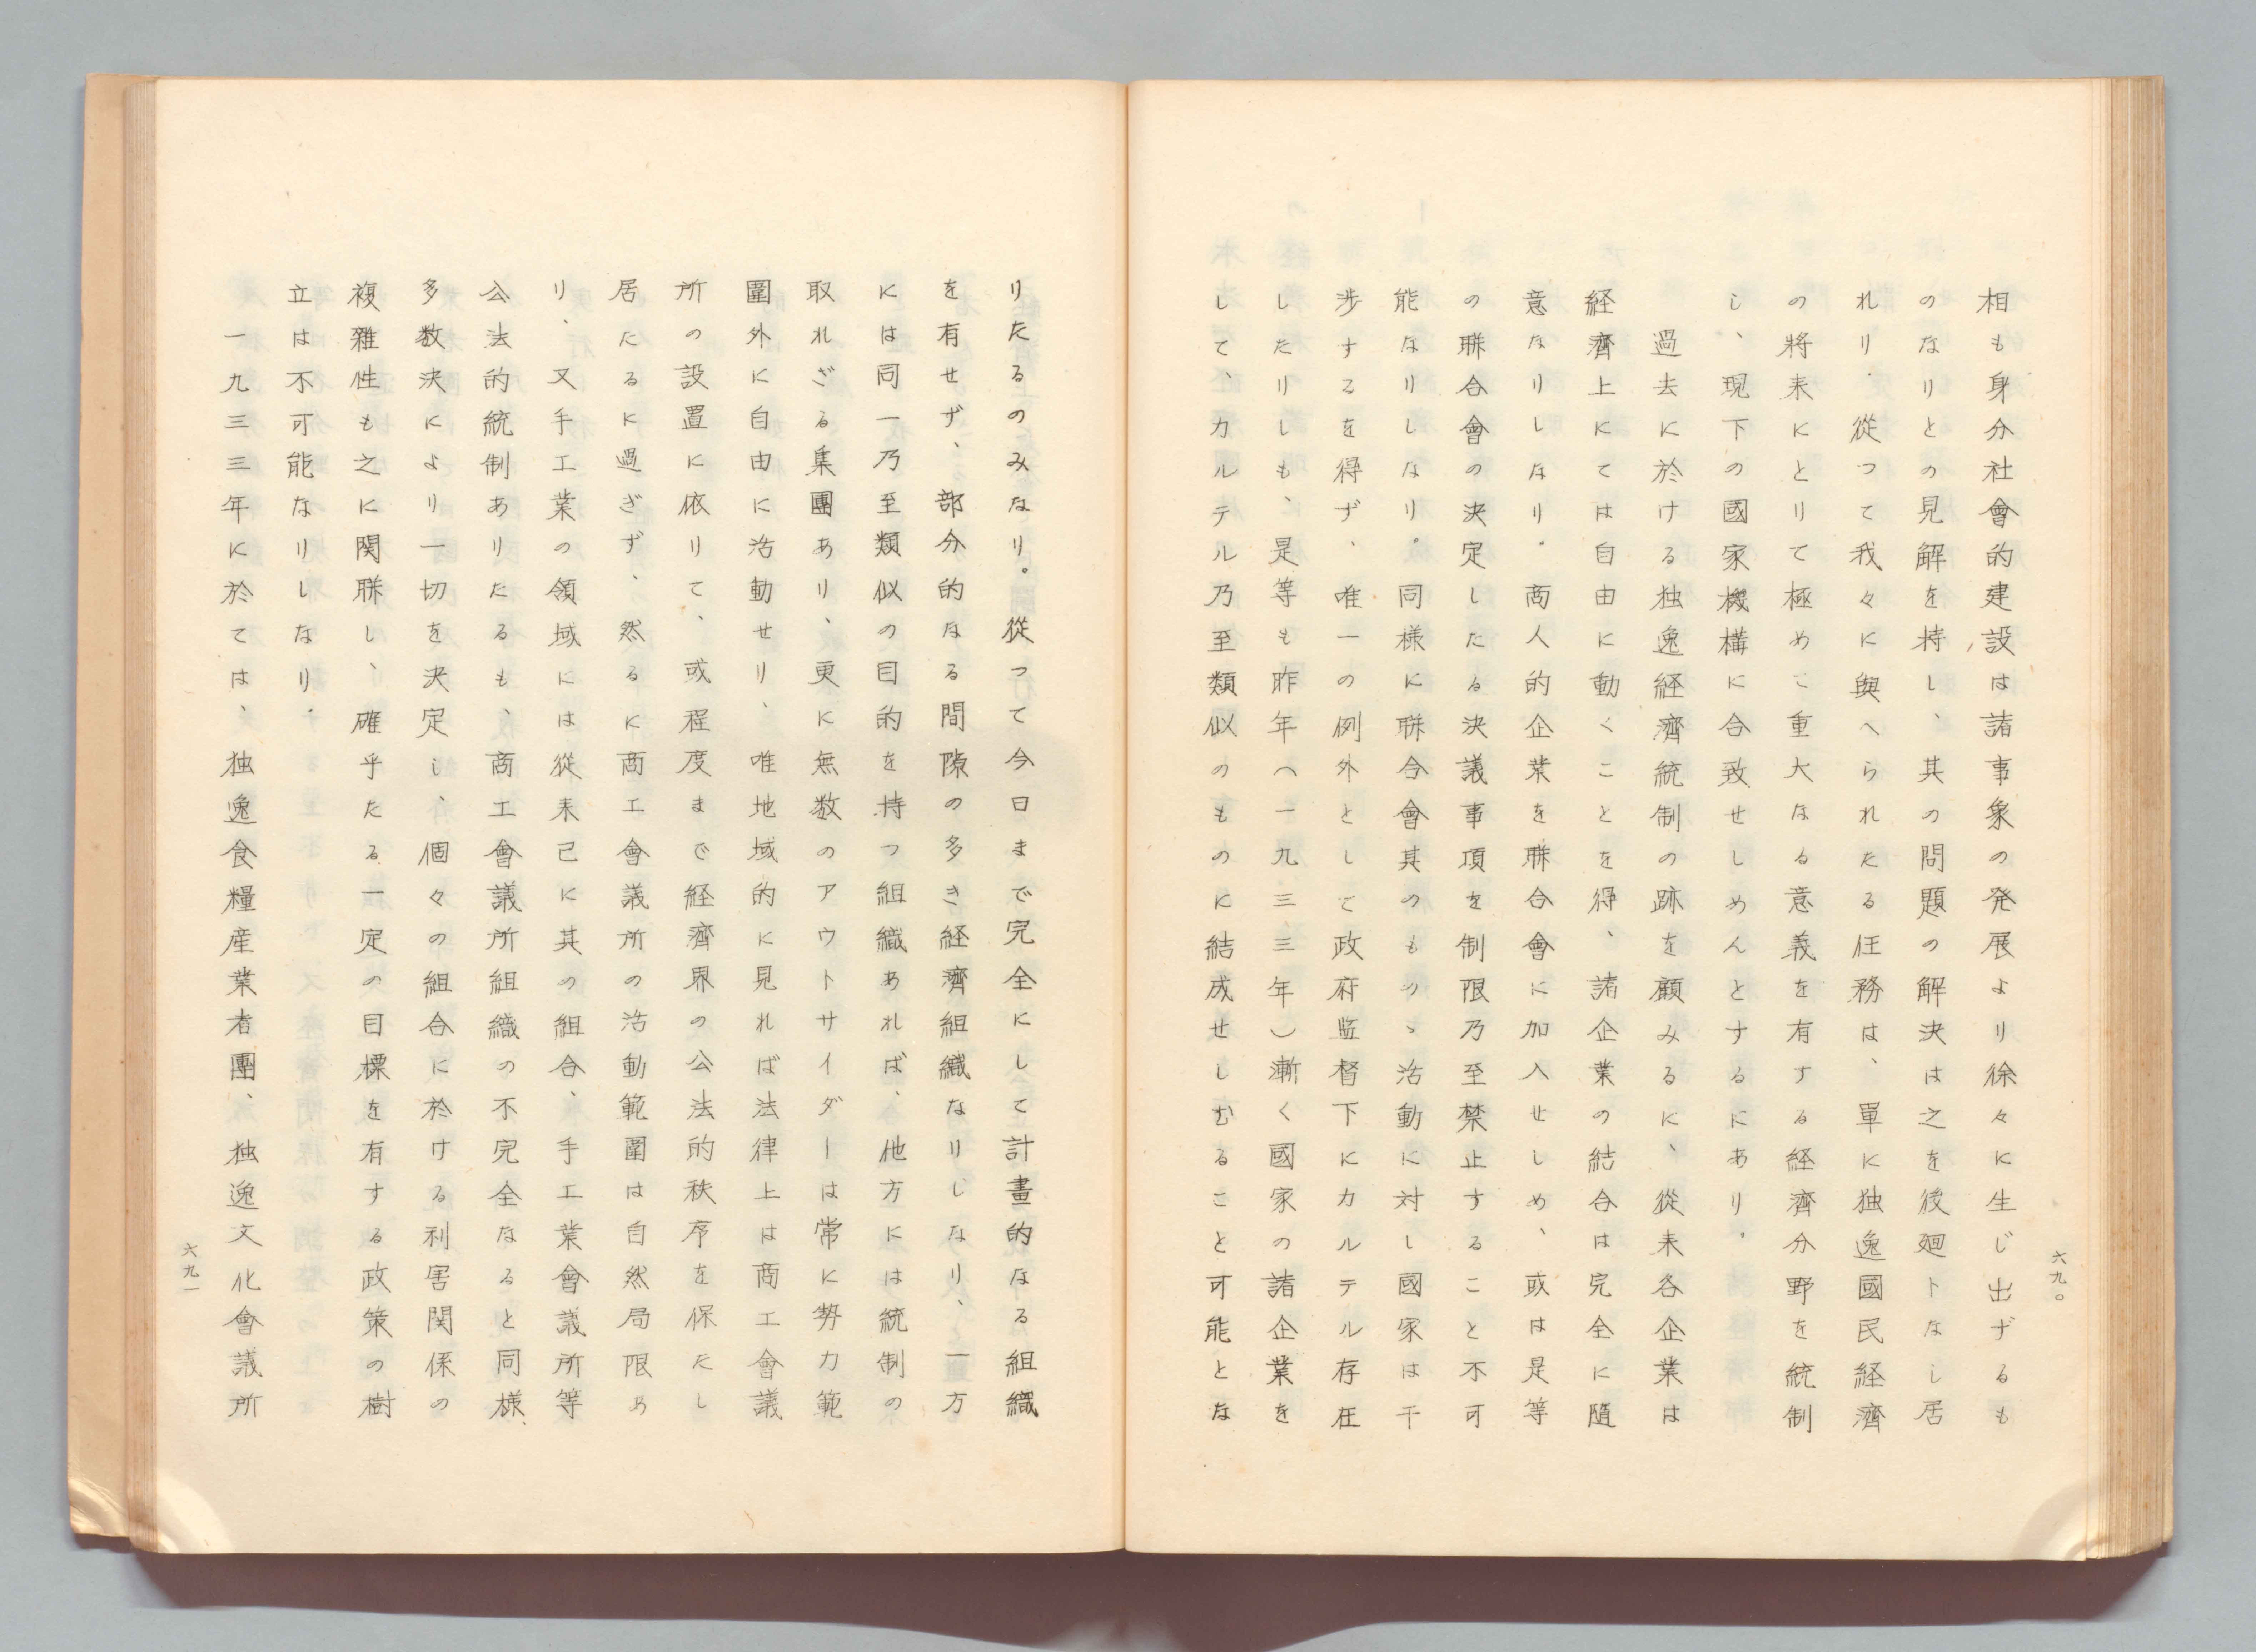 相も身分社會的建設は諸事象の発展より徐々に生じ出ずるも
のなりとの見解を持し、其の問題の解決は之を後廻トなし居
れり．從つて我々に與へられたる任務は、單に独逸國民経濟
の將来にとりて極めて重大なる意義を有する経濟分野を統制
し、現下の國家機構に合致せしめんとするにあり．
過去に於ける独逸経濟統制の跡を顧みるに、從来各企業は
経濟上にては自由に動くことを得、諸企業の結合は完全に随
意なりしなり．商人的企業を聯合會に加入せしめ、或は是等
の聯合會の決定したる決議事項を制限乃至禁止すること不可
能なりしなり。同様に聯合會其のものゝ活動に対し國家は干
渉するを得ず、唯一の例外として政府監督下にカルテル存在
したりしも、是等も昨年（一九三三年）漸く國家の諸企業を
して、カルテル乃至類似のものに結成せしむること可能とな
六九。
りたるのみなり。從つて今日まで完全にして計畫的なる組織
を有せず、部分的なる間隙の多き経濟組織なりしなり、一方
には同一乃至類似の目的を持つ組織あれば、他方には統制の
取れざる集團あり、更に無数のアウトサイダーは常に勢力範
圍外に自由に活動せり、唯地域的に見れば法律上は商工會議
所の設置に依りて、或程度まで経濟界の公法的秩序を保たし
居たるに過ぎず、然るに商工會議所の活動範圍は自然局限め
り、又手工業の領域には從来已に其の組合、手工業會議所等
公法的統制ありたるも、商工會議所組織の不完全なると同様、
多数決により一切を決定し、個々の組合に於ける利害関係の
複雜性も之に関聯し、確乎たる一定の目標を有する政策の樹
立は不可能なりしなり．
一九三三年に於ては、独逸食糧産業者團、独逸文化會議所
六九一